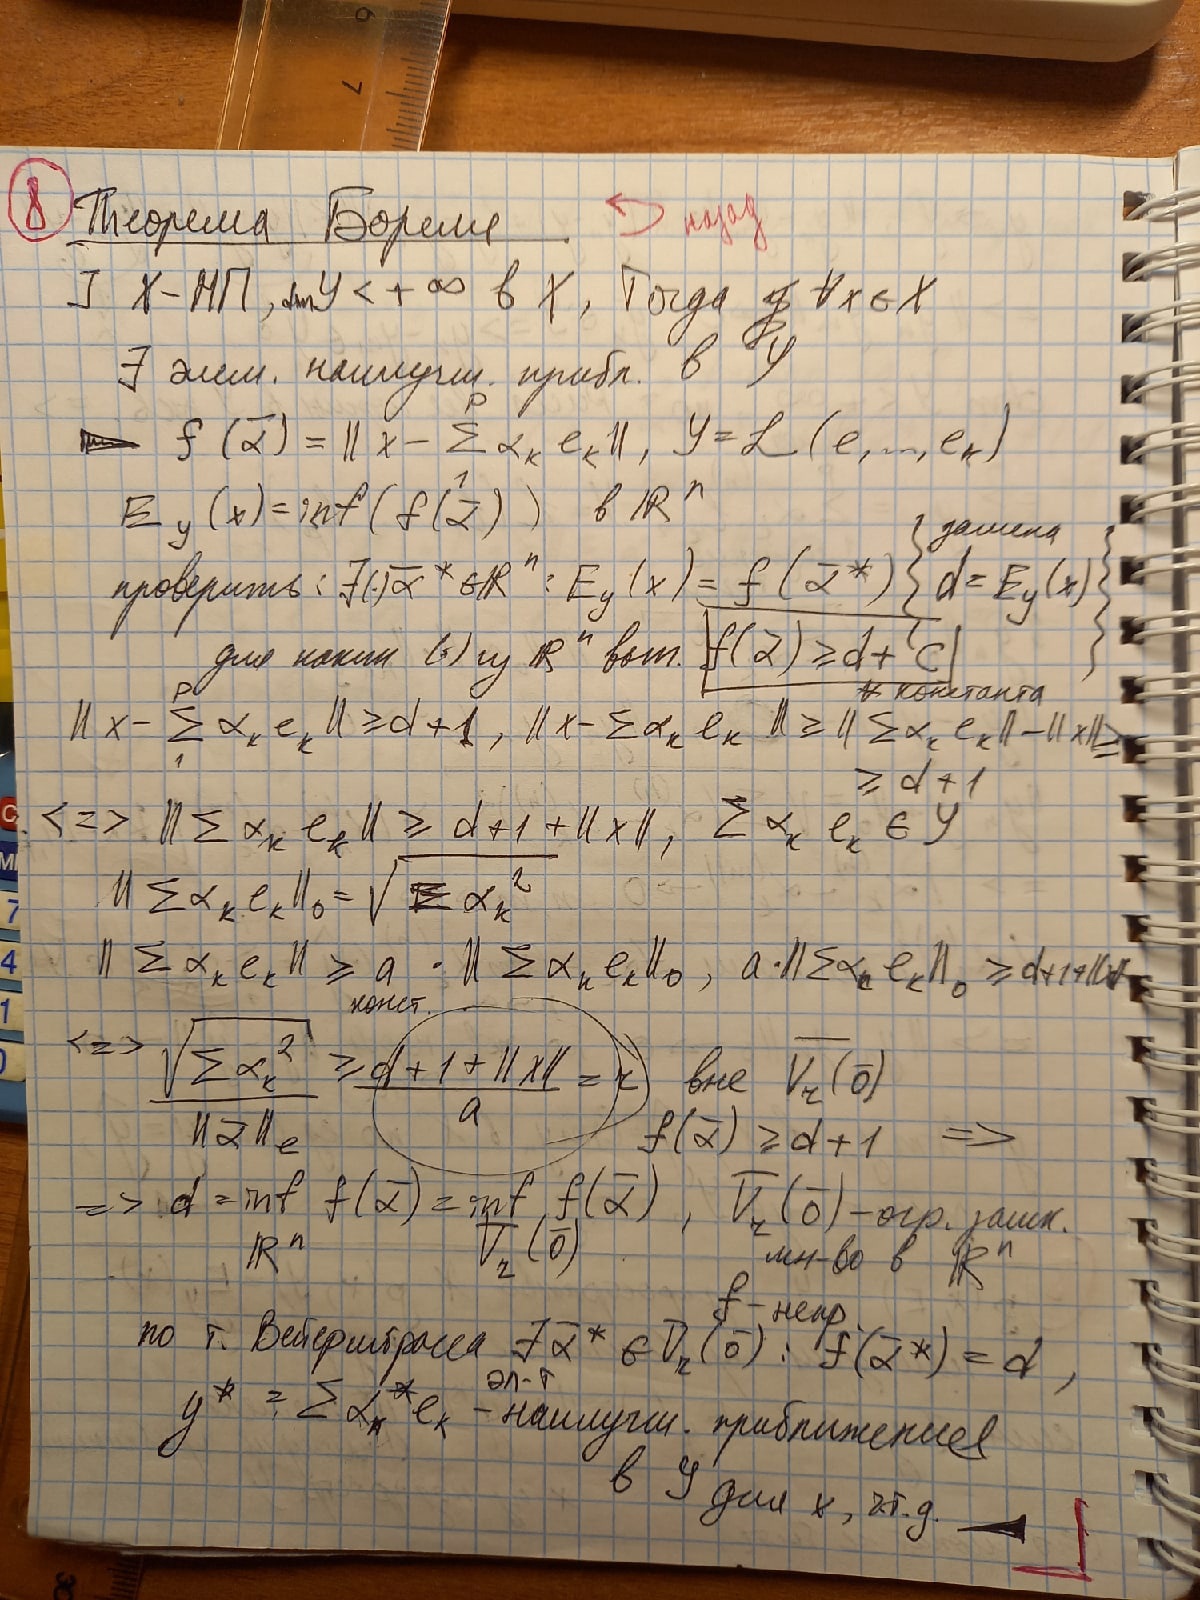 6
7
8 Теорема Бореля ↩ назад
] X - НП, dim Y < + ∞ в X, Тогда ∀x ∈ X
∃ элем. наилучш. прибл. в Y
f(ᾱ) = ||x - Σ₁ᵖ αₖ eₖ||, Y = ℒ(e,…,eₖ)
E_y(x) = inf(f(ᾱ)) в ℝⁿ
проверить: ∃(·)ᾱ* ∈ ℝⁿ: E_y(x) = f(ᾱ*) { замена d = E_y(x) }
для каких (·) из ℝⁿ вып. f(ᾱ) ≥ d + C
константа
||x - Σ₁ᵖ αₖ eₖ|| ≥ d+1, ||x - Σ αₖ eₖ|| ≥ ||Σ αₖ eₖ|| - ||x|| ≥
≥ d+1
<=> ||Σ αₖ eₖ|| ≥ d+1+||x||, Σ αₖ eₖ ∈ Y
||Σ αₖ eₖ||₀ = √(Σ αₖ²)
||Σ αₖ eₖ|| ≥ a · ||Σ αₖ eₖ||₀, a·||Σ αₖ eₖ||₀ ≥ d+1+||x||
конст.
<=> √(Σ αₖ²) ≥ (d+1+||x||)/a = r вне V̄ᵣ(0̄)
||ᾱ||ₑ f(ᾱ) ≥ d+1 =>
=> d = inf f(ᾱ) = inf f(ᾱ), V̄ᵣ(0̄) - огр. замк.
ℝⁿ V̄ᵣ(0̄) мн-во в ℝⁿ
f - непр.
по т. Вейерштрасса ∃ᾱ* ∈ V̄ᵣ(0̄): f(ᾱ*) = d,
y* = Σ αₖ* eₖ - эл-т наилучш. приближения
в Y для x, чт.д.
C
7
4
1